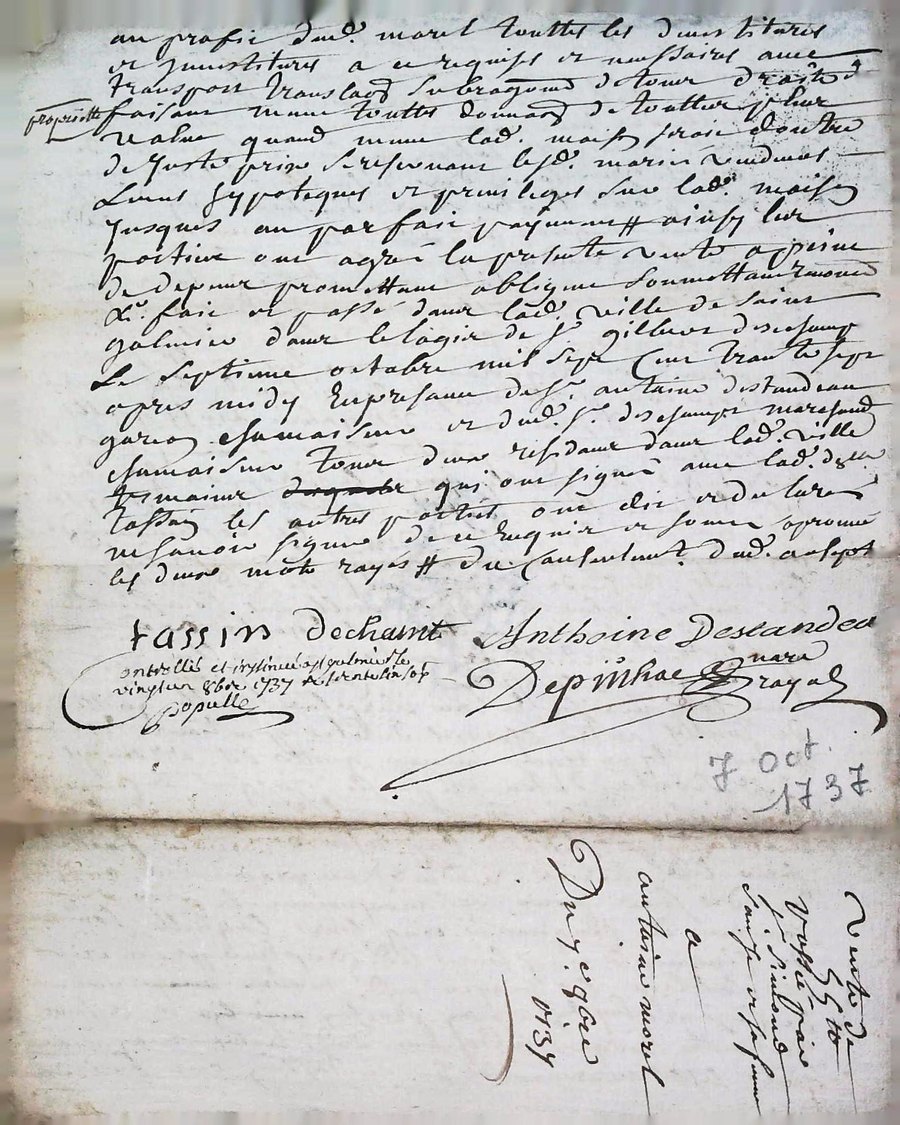 au profit dud. morel touttes les devestitures
et Investitures a ce requises et nessaires avec
transport translaon subrogaon de tous droits
proprietté
faisant mesme touttes donnaon de toutte plus
value quand mesme lad. maison seroit doutre
de Juste prix se reservant lesd. mariés vendeurs
Leurs hypoteques et privileges sur lad. maison
Jusques au parfait payement # ainsy les
parties ont agréé la presente vente a peine
de depens promettant obligeant soumettant renoncé
&a. fait et passé dans lad. ville de saint
galmier dans le logis de sr. gilbert deschamp
Le septieme octobre mil sept cent trante sept
apres midy En presence de sr. antoine destandeau
garçon chamoiseur et dud. sr. deschamps marchand
chamoiseur tous deux residans dans lad. ville
tesmoins qui ont signé avec lad. dlle
tassin les autres parties ont dit et declaré
ne savoir signer de ce Enquis et sommé aprouvé
les deux mots rayés # du consentement dud.
tassin Dechamt Anthoine Destandea
Controllé et insinué a st galmier le
vingt un 8bre 1737
populle
Depinhac
Notaire
royal
7 Oct.
1737
Vente de
sr Simond
et sa femme
a
antoine morel
Du 7e 8bre
1737